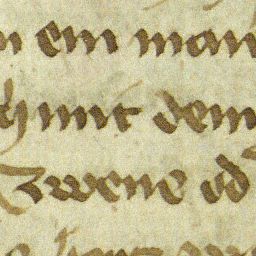 n ein man
hunt dem
Zwene od